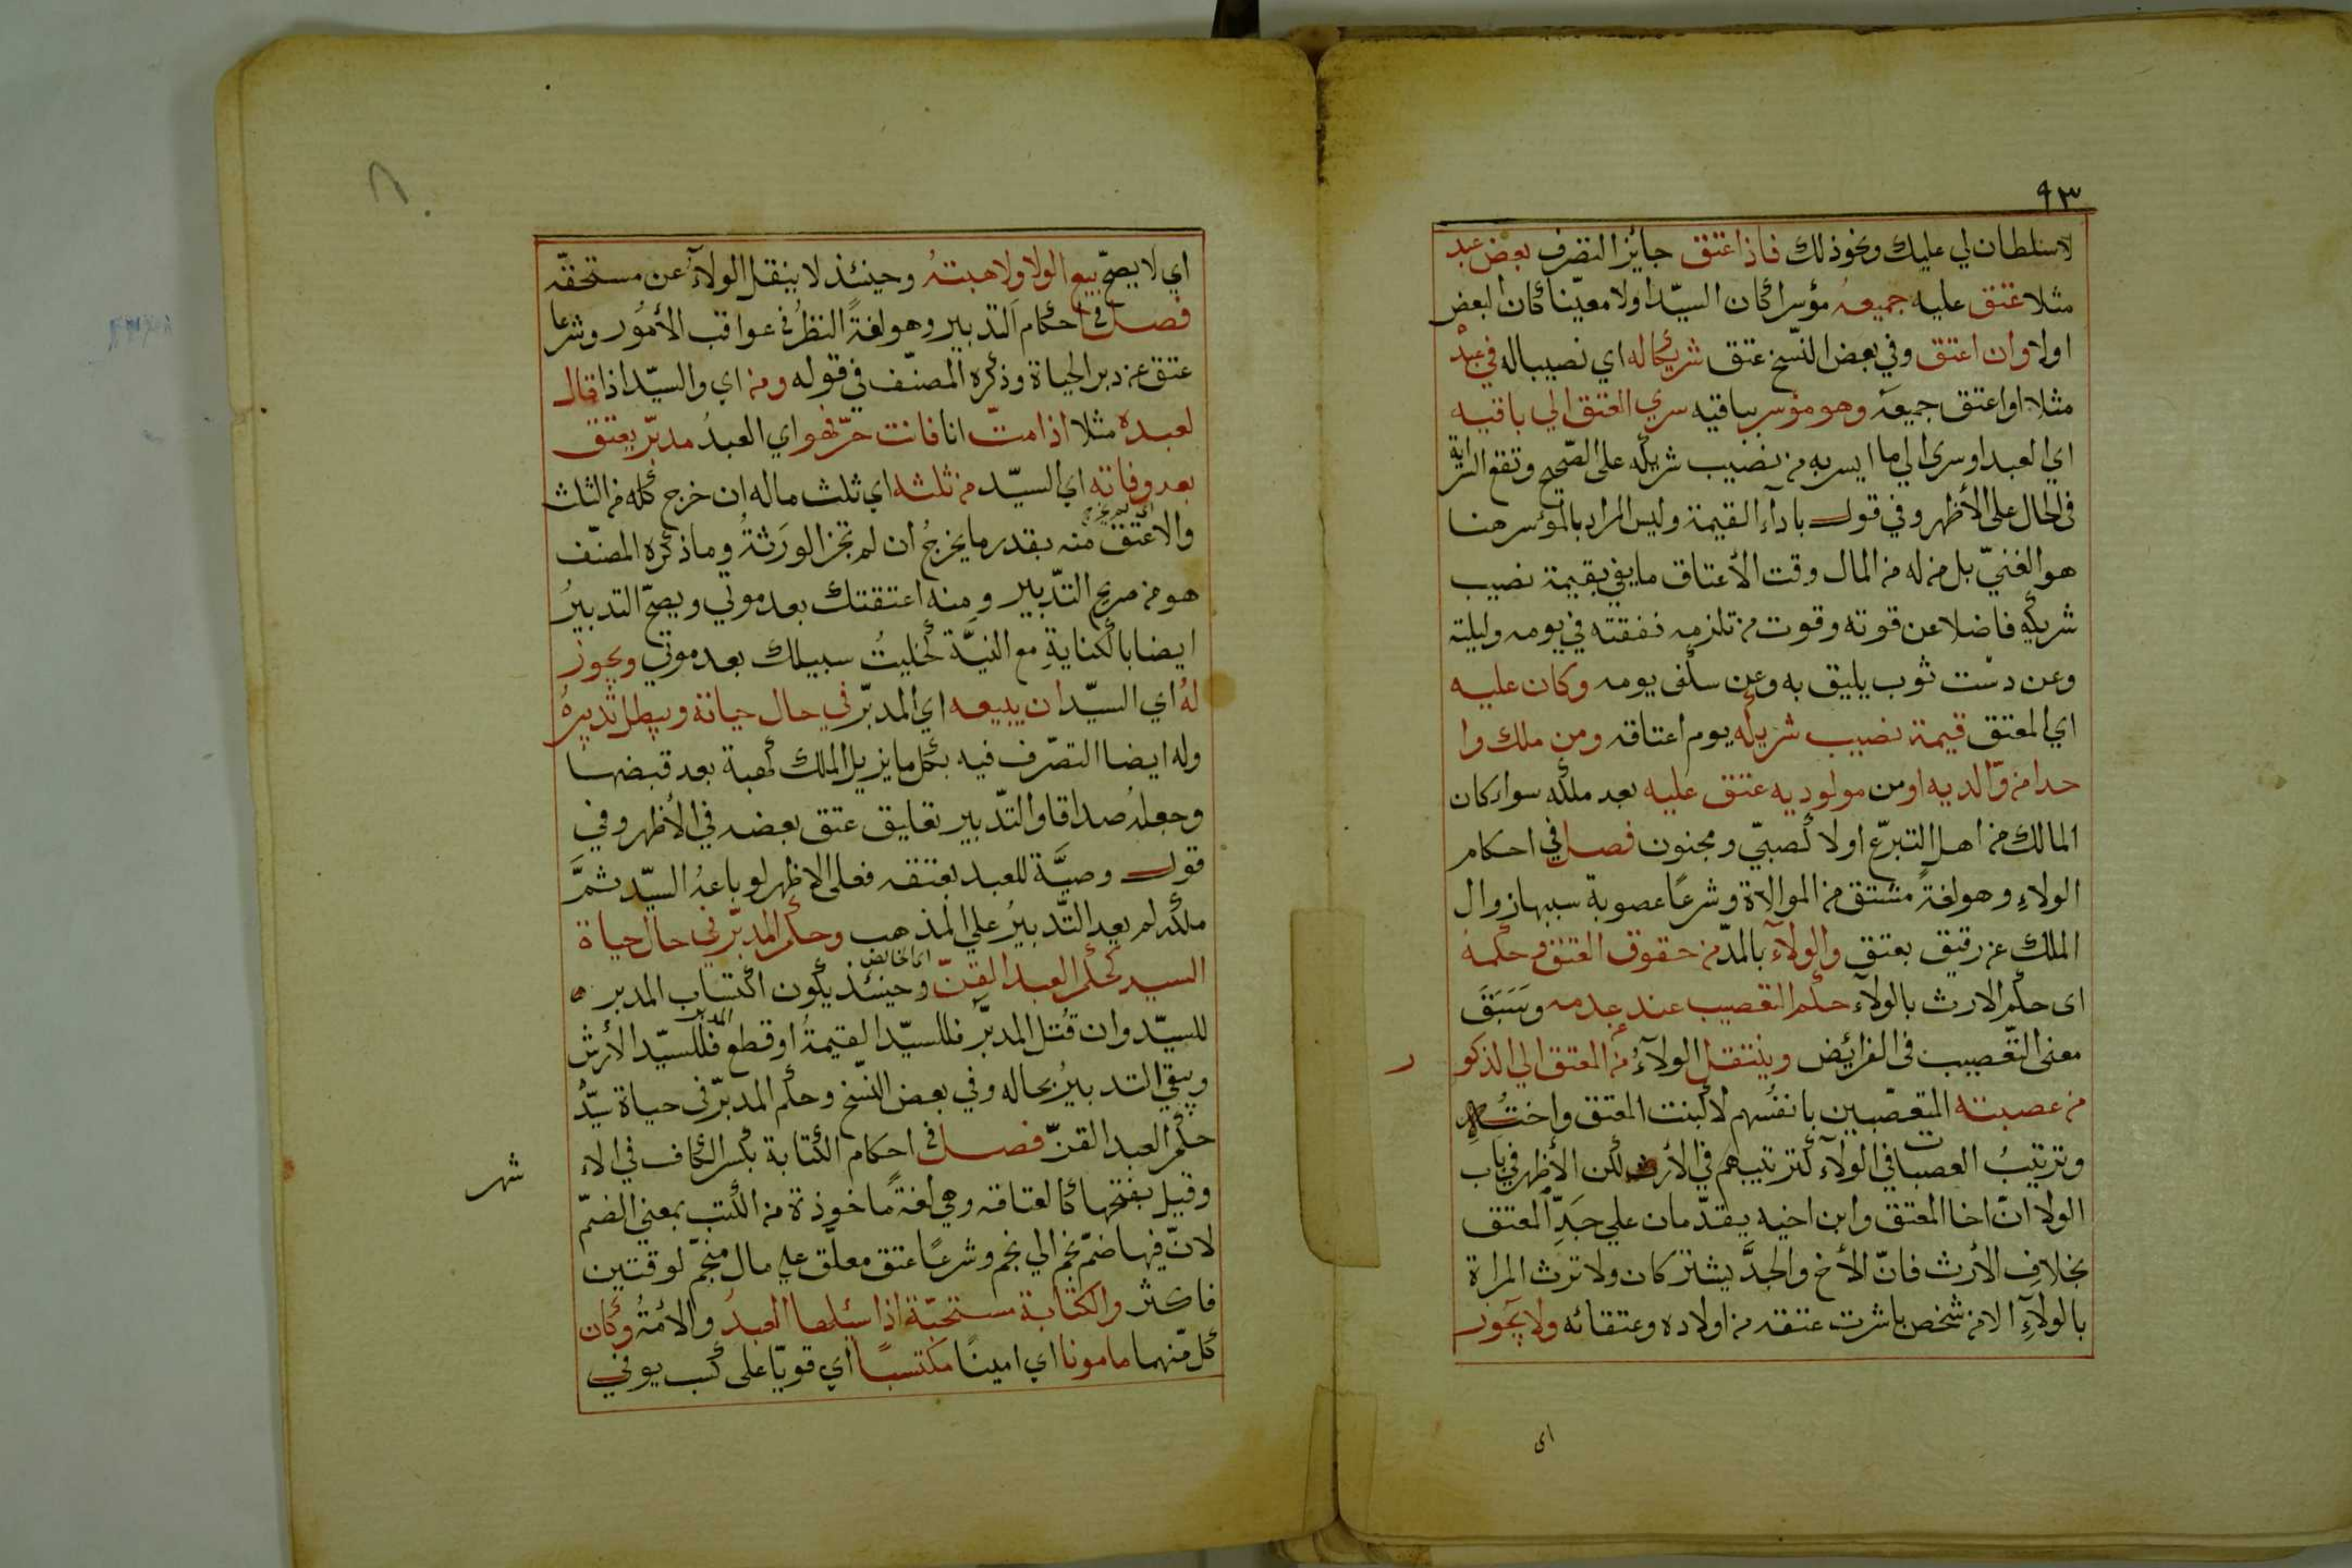 ٩٣
لاسلطان لي عليك ونحو ذلك فاذا عتق جايز التصرف بعض عبد
مثلا عتق عليه جميعه مؤسرا كان السيّد اولا معيّنا كان البعض
اولا وان اعتق وفي بعض النسّخ عتق شركا له اي نصيبا له في عبد
مثلا او اعتق جميعه وهو مؤسر بباقيه سري العتق الي باقيه
اي العبد او سرى الي ما ايسر به من نصيب شريكه على الصّحيح وتقع السراية
في الحال على الأظهر وفي قول باداء القيمة وليس المراد بالمؤسر هنا
هو الغنيّ بل من له من المال وقت الأعتاق ما يفي بقيمة نصيب
شريكه فاضلا عن قوته وقوت من تلزمه نفقته في يومه وليلته
وعن دست ثوب يليق به وعن سكنى يومه وكان عليه
اي المعتق قيمة نصيب شريكه يوم اعتاقه ومن ملك وا
حدا من والديه او من مولوديه عتق عليه بعد ملكه سواء كان
المالك من اهل التبرّع اولا كصبيّ ومجنون فصل في احكام
الولاءِ وهو لغةً مشتق من الموالاة وشرعًا عصوبة سببها زوال
الملك عن رقيق بعتق والولآء بالمدّ من حقوق العتق وحكمه
اى حكم الارث بالولآء حكم التعصيب عند عدمه وسَبَقَ
معنى التعصيب في الفرائض وينتقل الولآءُ من المعتق الي الذكو
ر
من عصبته المتعصّبين بانفسهم لا كبنت المعتق واخته
وترتيبُ العصبات في الولآء كترتيبهم في الأرث لكن الأظهر في باب
الولا انّ اخا المعتق وابن اخيه يقدّمان علي جَدِّ المعتق
بخلافِ الأرث فانّ الأخ والجدَّ يشتركان ولا ترث المراة
بالولاءِ الا من شخص باشرت عتقه من اولاده وعتقائه ولا يجوز
اى
اي لا يصحّ بيع الولا ولا هبتهُ وحينئذ لا ينتقل الولآءُ عن مستحقّه
فصل في احكام التدبير وهو لغةً النظرُ في عواقب الأمُور وشرعا
عتق عن دبر الحياة وذكره المصنّف في قوله ومن اي والسيّد اذا قال
لعبده مثلا اذا متّ انا فانت حرّ فهو اي العبدُ مدبّر يعتق
بعد وفاته اي السيّد من ثلثه اي ثلث ماله ان خرج كله من الثلث
والا عتق منه بقدر ما يخرجُ ان لم تجز الورَثةُ وما ذكره المصنّف
هو من صريح التدّبير ومنه اعتقتك بعد موتي ويصحّ التدبيرُ
ايضا بالكنايةِ مع النيَّة كخليتُ سبيلك بعد موتي ويجوز
لهُ اي السيّد ان يبيعه اي المدبّر في حال حياته ويبطل تدبيرهُ
وله ايضا التصّرف فيه بكل ما يزيل الملك كهبة بعد قبضها
وجعلهُ صداقا والتدّبير تعليق عتق بعضه في الأظهر وفي
قول وصيَّة للعبد بعتقه فعلى الاظهر لو باعهُ السيّد ثمَّ
ملكه لم يعد التَّدبيرُ علي المذهب وحكم المدبّر في حال حياة
السيد كحكم العبد القنّ وحينئذ يكون اكتساب المدبر
اى الخالص
للسيّد وان قُتل المدبَّر فللسيّد القيمةُ او قطع المدبّر فللسيّد الأرش
ويبقي التدبيرُ بحاله وفي بعض النسّخ وحكم المدبّر في حياة سيّد
حكم العبد القنّ فصل في احكام الكتابة بكسر الكاف في الا
شهر
وقيل بفتحها كالعتاقه وهي لغةً ماخوذة من الكتب بمعني الضّم
لانّ فيها ضمّ نجم الي نجم وشرعًا عتق معلّق علي مال منجّم لوقتين
فاكثر والكتابة مستحبّة اذا سئلها العبدُ والأمةُ وكان
كل منهما مامونا اي امينًا مكتسبًا اي قويّا على كسب يوفي